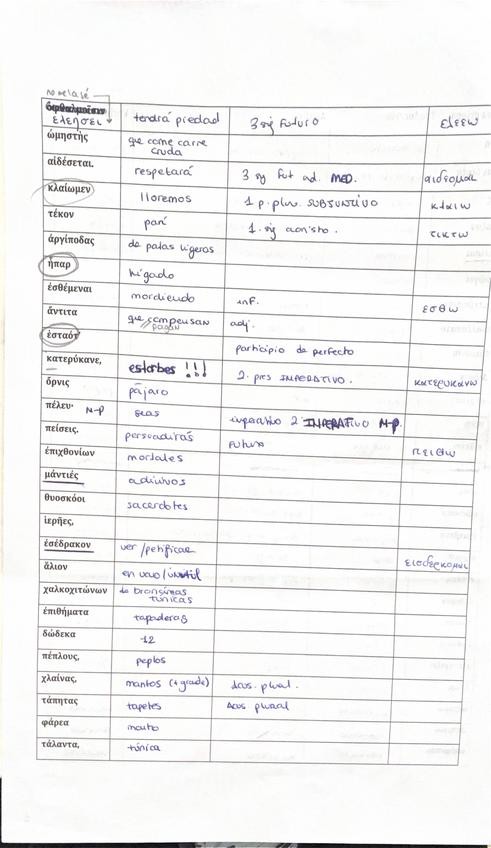 ελεησει tendrá piedad 3 sg Futuro ελεεω
ὠμηστής que come carne
cruda
αἰδέσεται. respetará 3 sg fut ind. MED. αιδεομαι
κλαίωμεν lloremos 1 p. plur. SUBJUNTIVO κλαιω
τέκον parí 1. sig aoristo. τικτω
ἀργίποδας de patas ligeras
ἧπαρ hígado
ἐσθέμεναι mordiendo inf. εσθω
ἄντιτα que compensan adj.
pagan
ἑσταότ participio de perfecto
κατερύκανε, estorbes !!! 2. pres IMPERATIVO. κατερυκανω
ὄρνις pájaro
πέλευ· M-p seas imperativo 2 IMPERATIVO M-p.
πείσεις. persuadirás Futuro πειθω
ἐπιχθονίων mortales
μάντιές adivinos
θυοσκόοι sacerdotes
ἱερῆες,
ἐσέδρακον ver/petrificar εισδερκομαι
ἅλιον en vano/inútil
χαλκοχιτώνων de broncíneas
túnicas
ἐπιθήματα tapaderas
δώδεκα 12
πέπλους, peplos
χλαίνας, mantos (+ grande) Acus. plural.
τάπητας tapetes Acus plural
φάρεα manto
τάλαντα, túnica